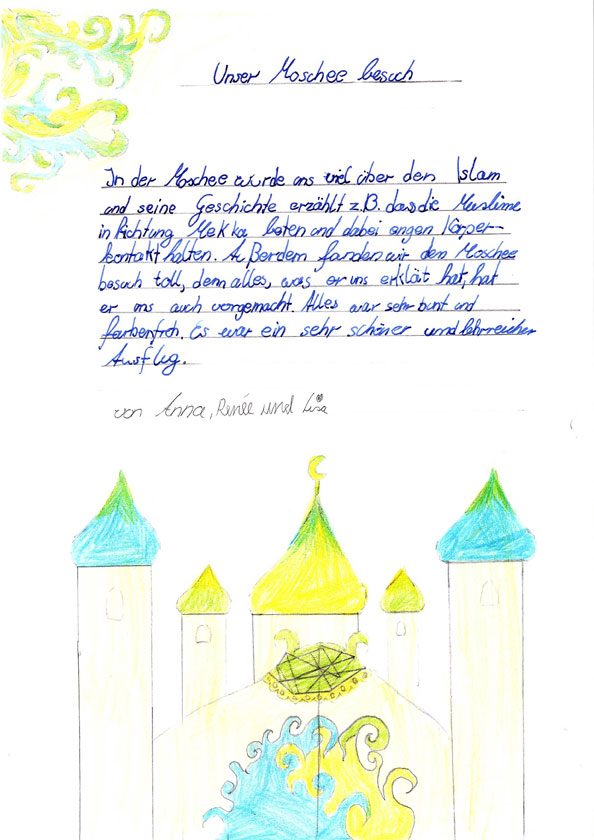 Unser Moschee besuch
In der Moschee wurde uns viel über den Islam
und seine Geschichte erzählt z.B. dass die Muslime
in Richtung Mekka beten und dabei engen Körper-
kontakt halten. Außerdem fanden wir dem Moschee
besuch toll, denn alles, was er uns erklärt hat, hat
er uns auch vorgemacht. Alles war sehr bunt und
farbenfroh. Es war ein sehr schöner und lehrreicher
Ausflug.
von Anna, Renée und Lisa